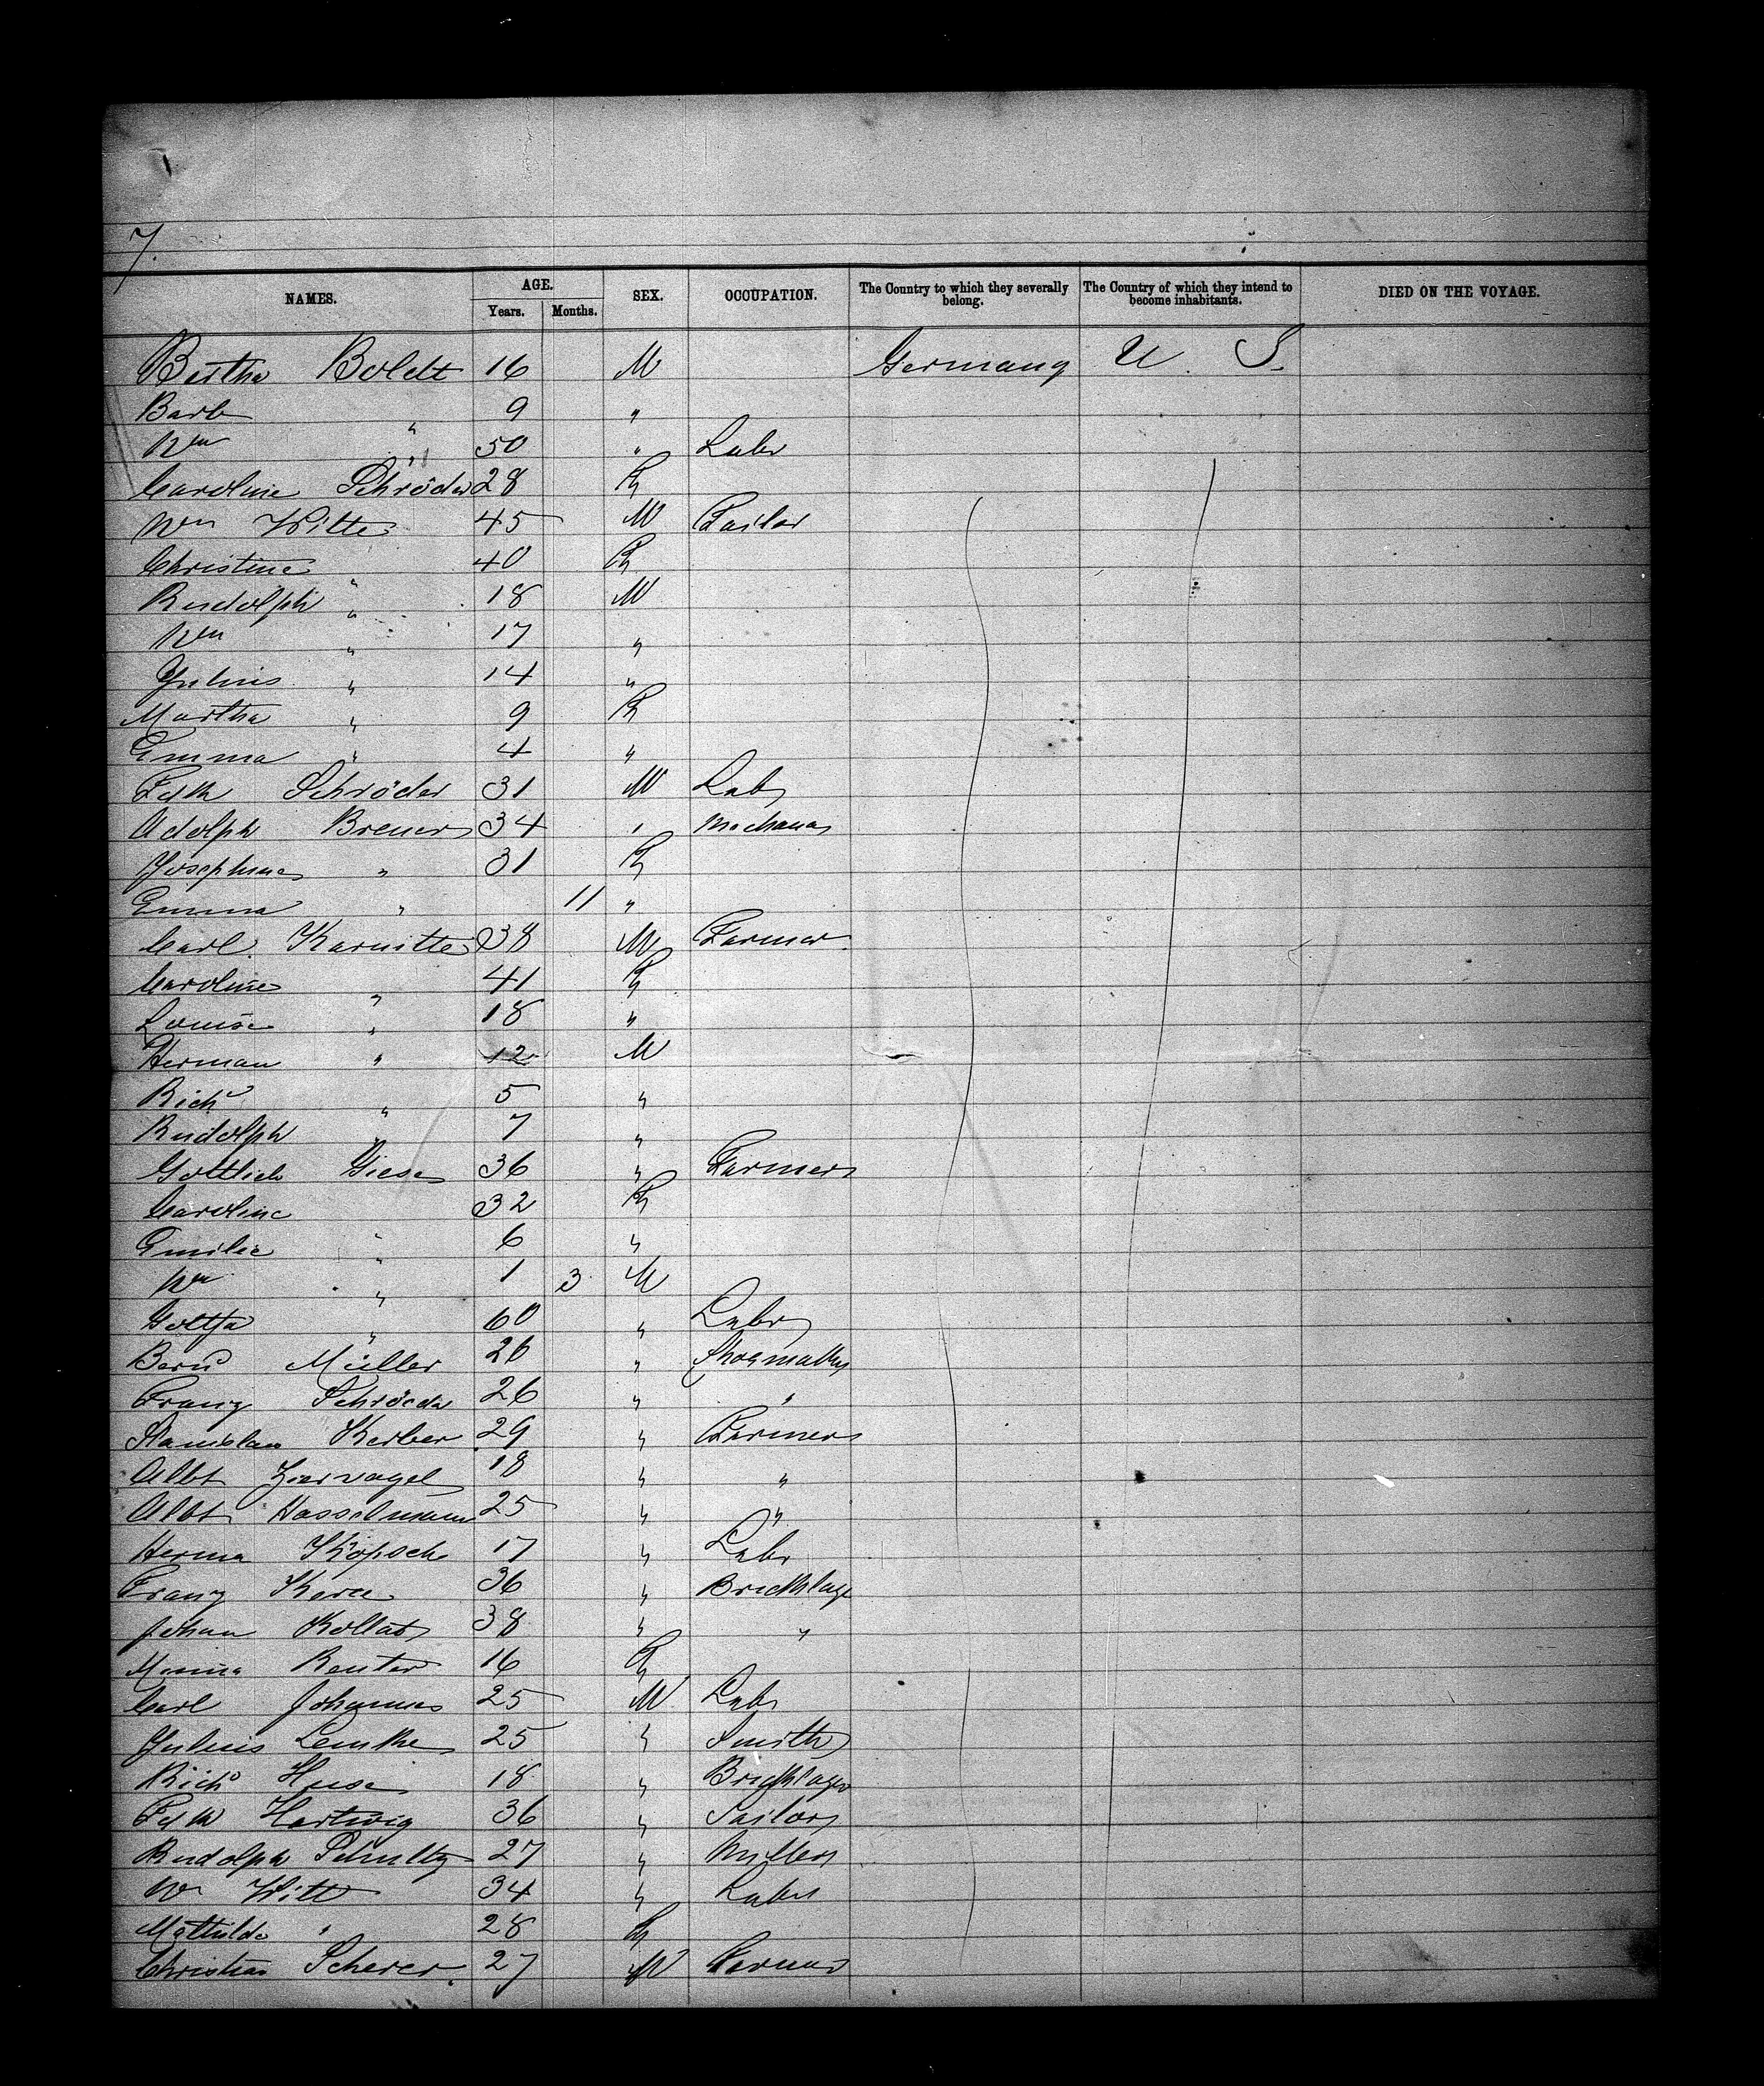 7.
NAMES. AGE. SEX. OCCUPATION. The Country to which they severally belong. The Country of which they intend to become inhabitants. DIED ON THE VOYAGE.
Years. Months.
Bertha Boldt 16 M Germany U. S.
Barb " 9 "
Wm " 50 " Labr
Caroline Schröder 28 F
Wm Witte 45 M Tailor
Christine " 40 F
Rudolph " 18 M
Wm " 17 "
Julius " 14 "
Martha " 9 F
Emma " 4 "
Fdk Schröder 31 M Labr
Adolph Breuer 34 "
Josephine " 31 F
Emma " 11 "
Carl 38 M Farmer
Caroline " 41 F
Louise " 18 "
Herman " 12 M
Richd " 5 "
Rudolph " 7 "
Gottlieb Giese 36 " Farmer
Caroline " 32 F
Emilie " 6 "
Wm " 1 3 M
" 60 " Labr
Bernd Müller 26 "
Franz Schröder 26 " "
Stanislaus Kerber 29 " Farmer
Albt Ziervogel 18 " "
Albt Hasselmann 25 " "
Herma Köpsch 17 " Labr
Franz 36 " Bricklayr
Johan Kollat 38 " "
Minna Reuter 16 F
Carl Johannes 25 M Labr
Julius Lemke 25 " Smith
Richd 18 " Bricklayer
Fdk Hartwig 36 " Sailor
Rudolph Schultz 27 " Miller
Wm Witt 34 " Labr
Mathilde " 28 F
Christian Scherer 27 M